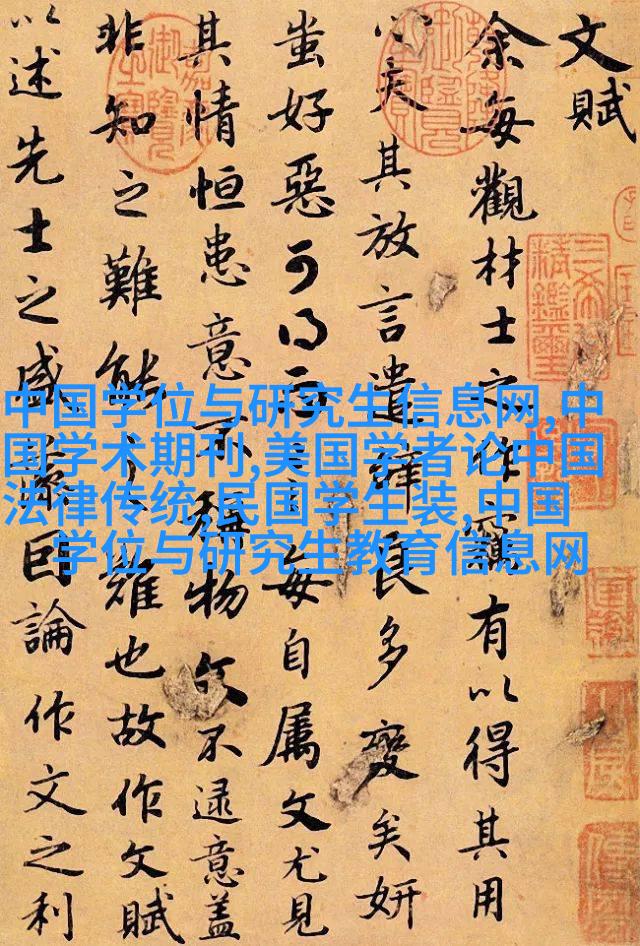 文賦
余每觀材士之作竊有以得其用
心夫其放言遣辭良多變矣妍
蚩好惡可得而言每自屬文尤見
其情恒患意不稱物文不逮意蓋
非知之難能之難也故作文賦
以述先士之盛藻因論作文之利
中国学位与研究生信息网,中
国学术期刊,美国学者论中国
法律传统,民国学生装,中国
学位与研究生教育信息网